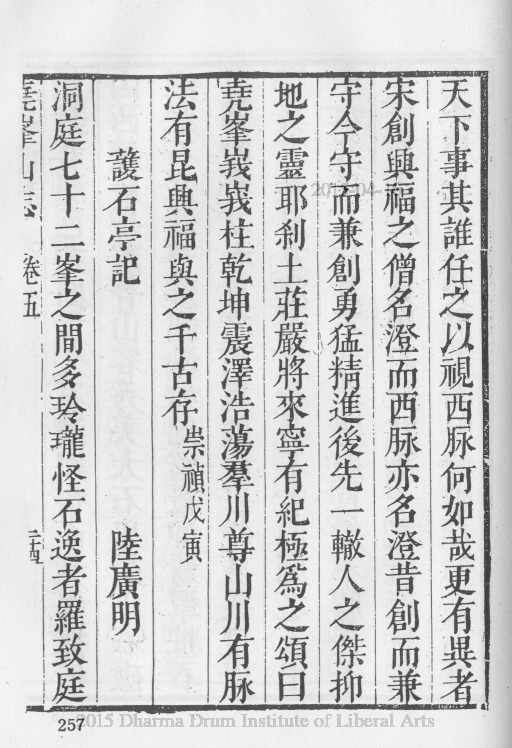 天下事其誰任之以視西脉何如哉更有異者
宋創興福之僧名澄而西脉亦名澄昔創而兼
守今守而兼創勇猛精進後先一轍人之傑抑
地之靈耶刹土莊嚴將來寧有紀極爲之頌曰
堯峯峩峩柱乾坤震澤浩蕩羣川尊山川有脉
法有昆興福與之千古存 崇禎戊寅
護石亭記 陸廣明
洞庭七十二峯之間多玲瓏怪石逸者羅致庭
堯峯山志 卷五 二四
257
2015 Dharma Drum Institute of Liberal Arts